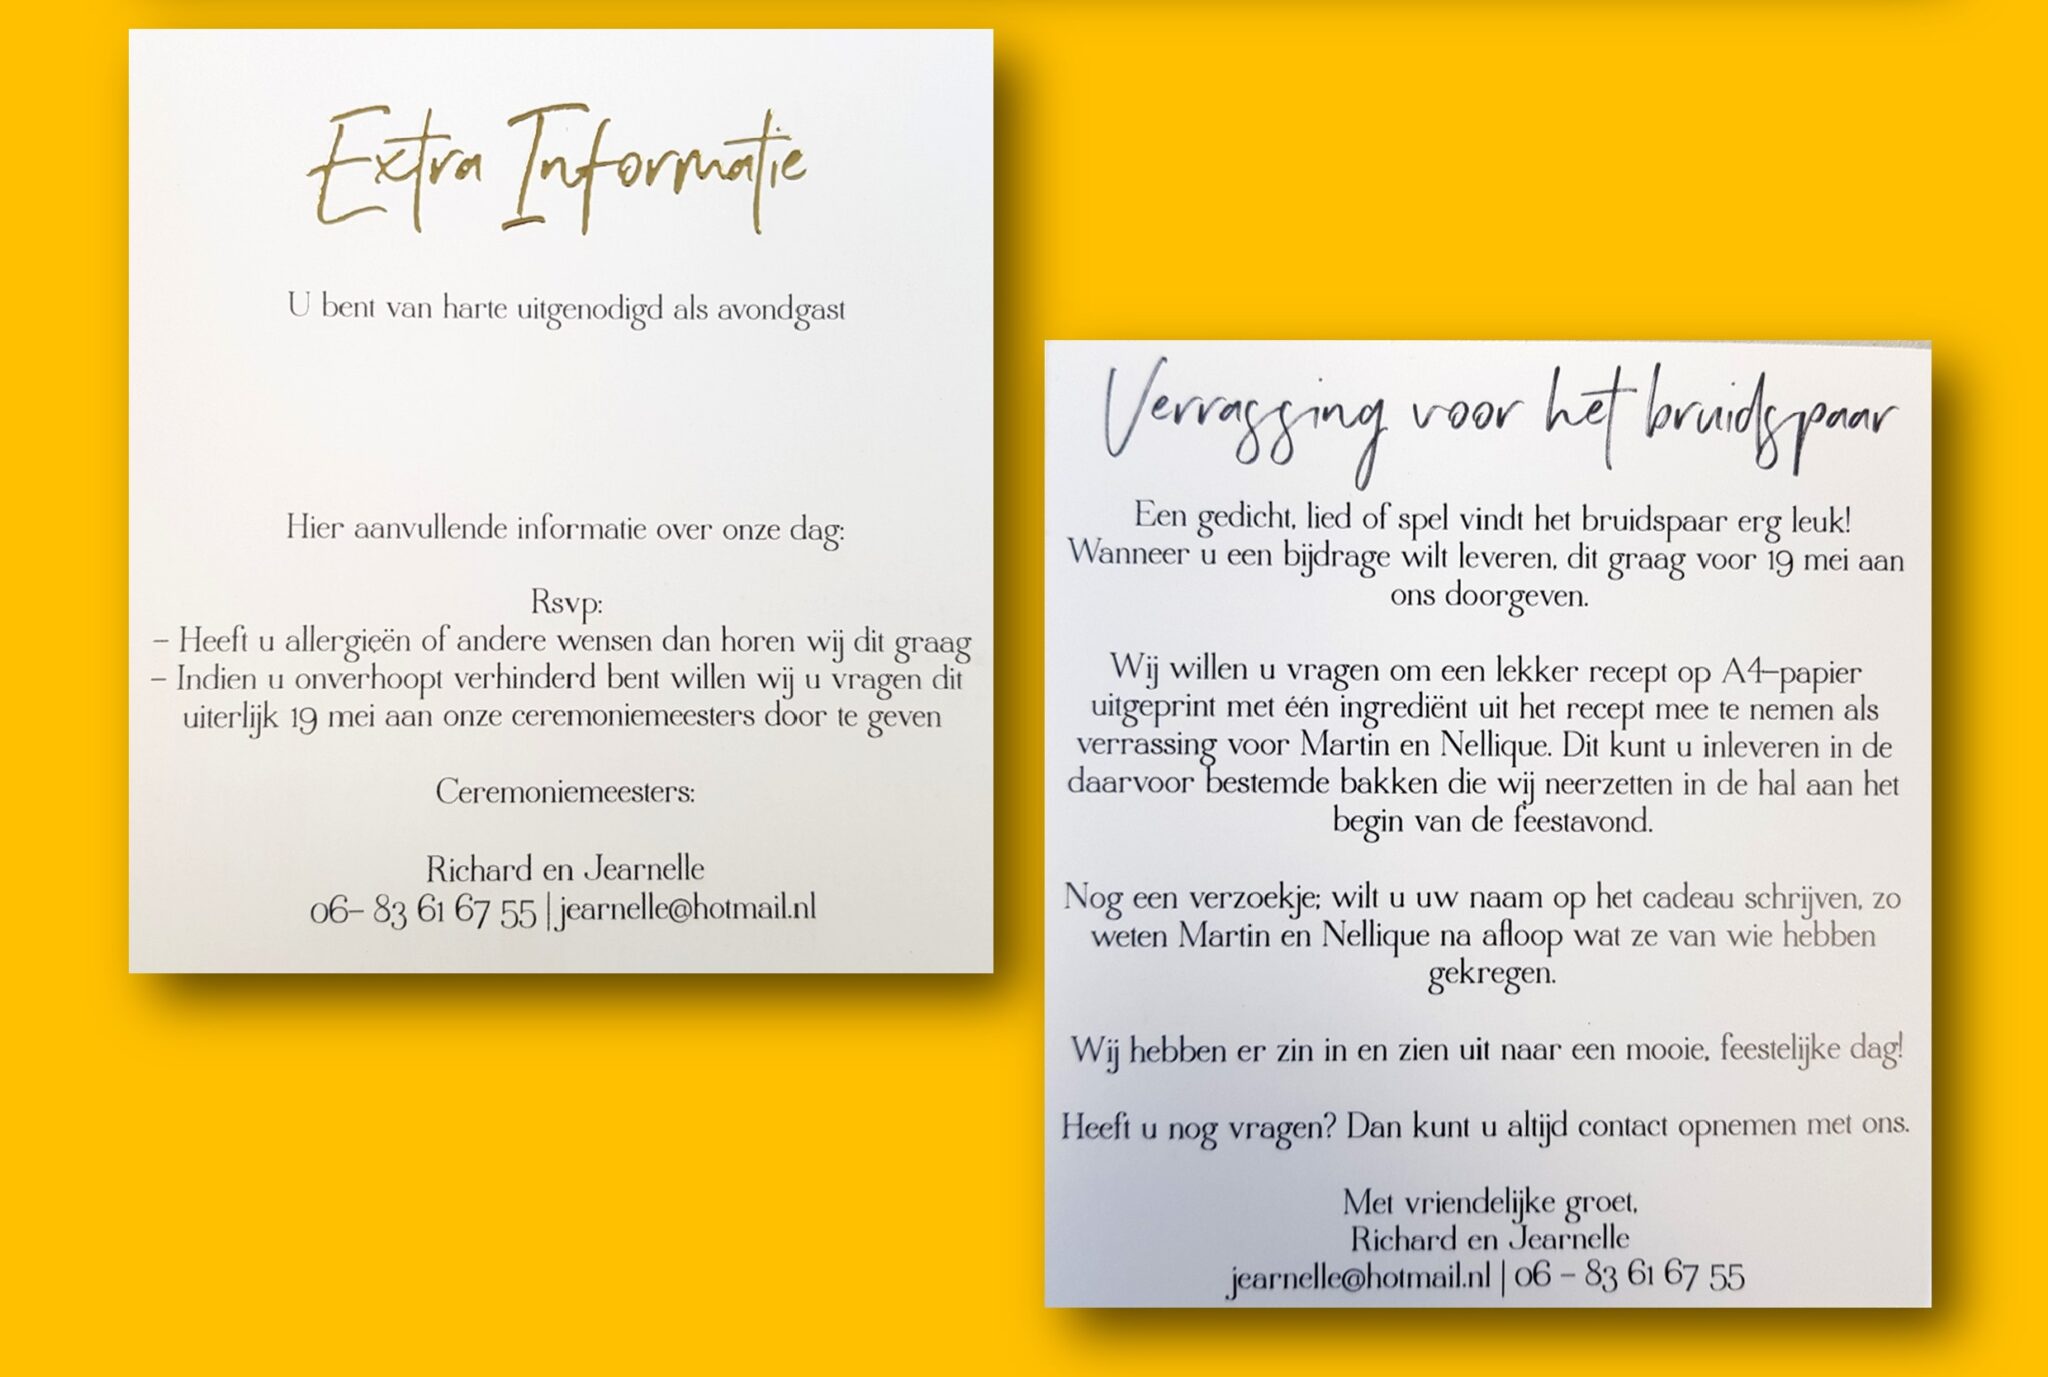 Extra Informatie
U bent van harte uitgenodigd als avondgast
Hier aanvullende informatie over onze dag:
Rsvp:
– Heeft u allergieën of andere wensen dan horen wij dit graag
– Indien u onverhoopt verhinderd bent willen wij u vragen dit
uiterlijk 19 mei aan onze ceremoniemeesters door te geven
Ceremoniemeesters:
Richard en Jearnelle
06– 83 61 67 55 | jearnelle@hotmail.nl
Verrassing voor het bruidspaar
Een gedicht, lied of spel vindt het bruidspaar erg leuk!
Wanneer u een bijdrage wilt leveren, dit graag voor 19 mei aan
ons doorgeven.
Wij willen u vragen om een lekker recept op A4–papier
uitgeprint met één ingrediënt uit het recept mee te nemen als
verrassing voor Martin en Nellique. Dit kunt u inleveren in de
daarvoor bestemde bakken die wij neerzetten in de hal aan het
begin van de feestavond.
Nog een verzoekje; wilt u uw naam op het cadeau schrijven, zo
weten Martin en Nellique na afloop wat ze van wie hebben
gekregen.
Wij hebben er zin in en zien uit naar een mooie, feestelijke dag!
Heeft u nog vragen? Dan kunt u altijd contact opnemen met ons.
Met vriendelijke groet,
Richard en Jearnelle
jearnelle@hotmail.nl | 06 – 83 61 67 55